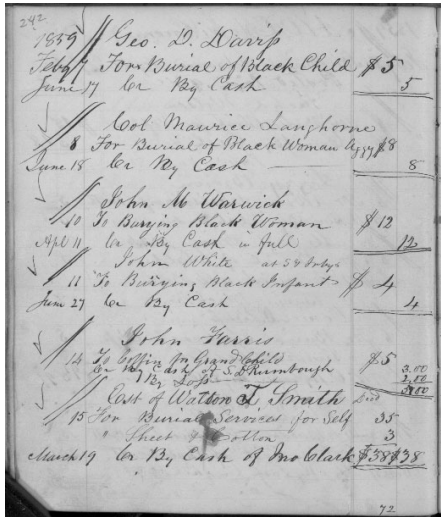 242
1859 Geo. D. Davis
Feby 7 For Burial of Black Child $5
June 17 Cr By Cash 5
Col Maurice Langhorne
8 For Burial of Black Woman Aggy $8
June 18 Cr By Cash 8
John M Warwick
10 To Burying Black Woman $12
Apl 11 Cr By Cash in full 12
John White at
11 To Burying Black Infant $4
June 27 Cr By Cash 4
John Farris
14 To Coffin for Grand Child $5
Cr By Cash of S. D Rumbough 3.00
By Loss 2.00
5.00
Est of Watson T Smith Decd
15 For Burial Services for Self 35
Sheet & Cotton 3
March 19 Cr By Cash of Jno Clark $38 $38
72